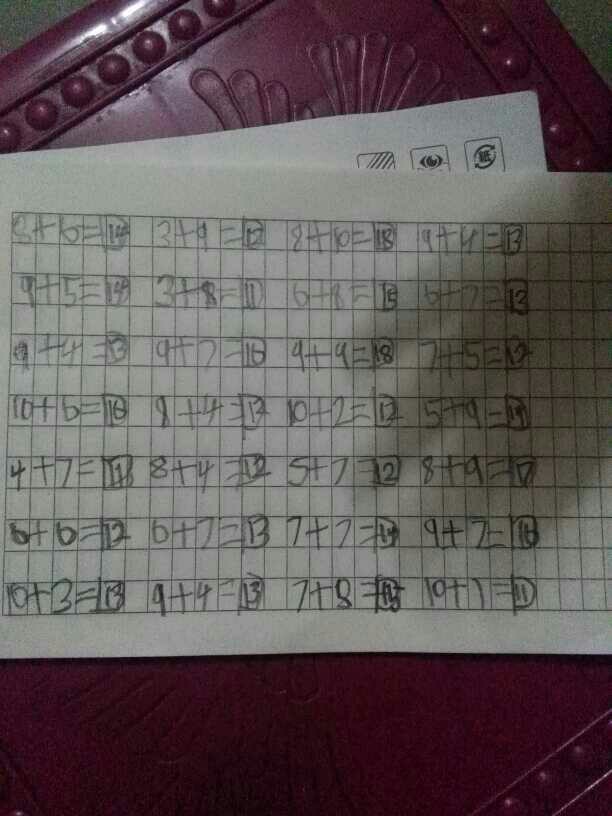 8+6=14 3+9=12 8+10=18 9+4=13
9+5=14 3+8=11 6+7=13
9+4=13 9+7=16 9+9=18 7+5=12
10+6=16 8+4=12 10+2=12 5+9=14
4+7=11 8+4=12 5+7=12 8+9=17
6+6=12 6+7=13 7+7=14 9+7=16
10+3=13 9+4=13 7+8=15 10+1=11